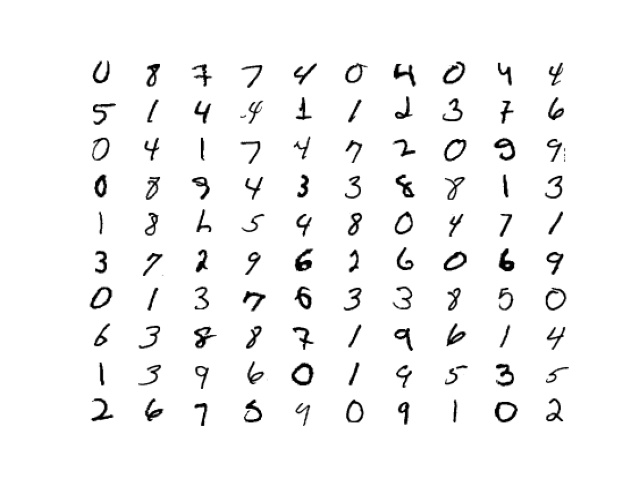 0 8 7 7 4 0 4 0 4 4
5 1 4 4 1 1 2 3 7 6
0 4 1 7 4 7 2 0 9 9
0 8 9 4 3 3 8 8 1 3
1 8 5 9 8 0 4 7 1
3 7 2 9 6 2 6 0 6 9
0 1 3 7 6 3 3 8 5 0
6 3 8 8 7 1 9 6 1 4
1 3 9 6 0 1 9 5 3 5
2 6 7 5 9 0 9 1 0 2